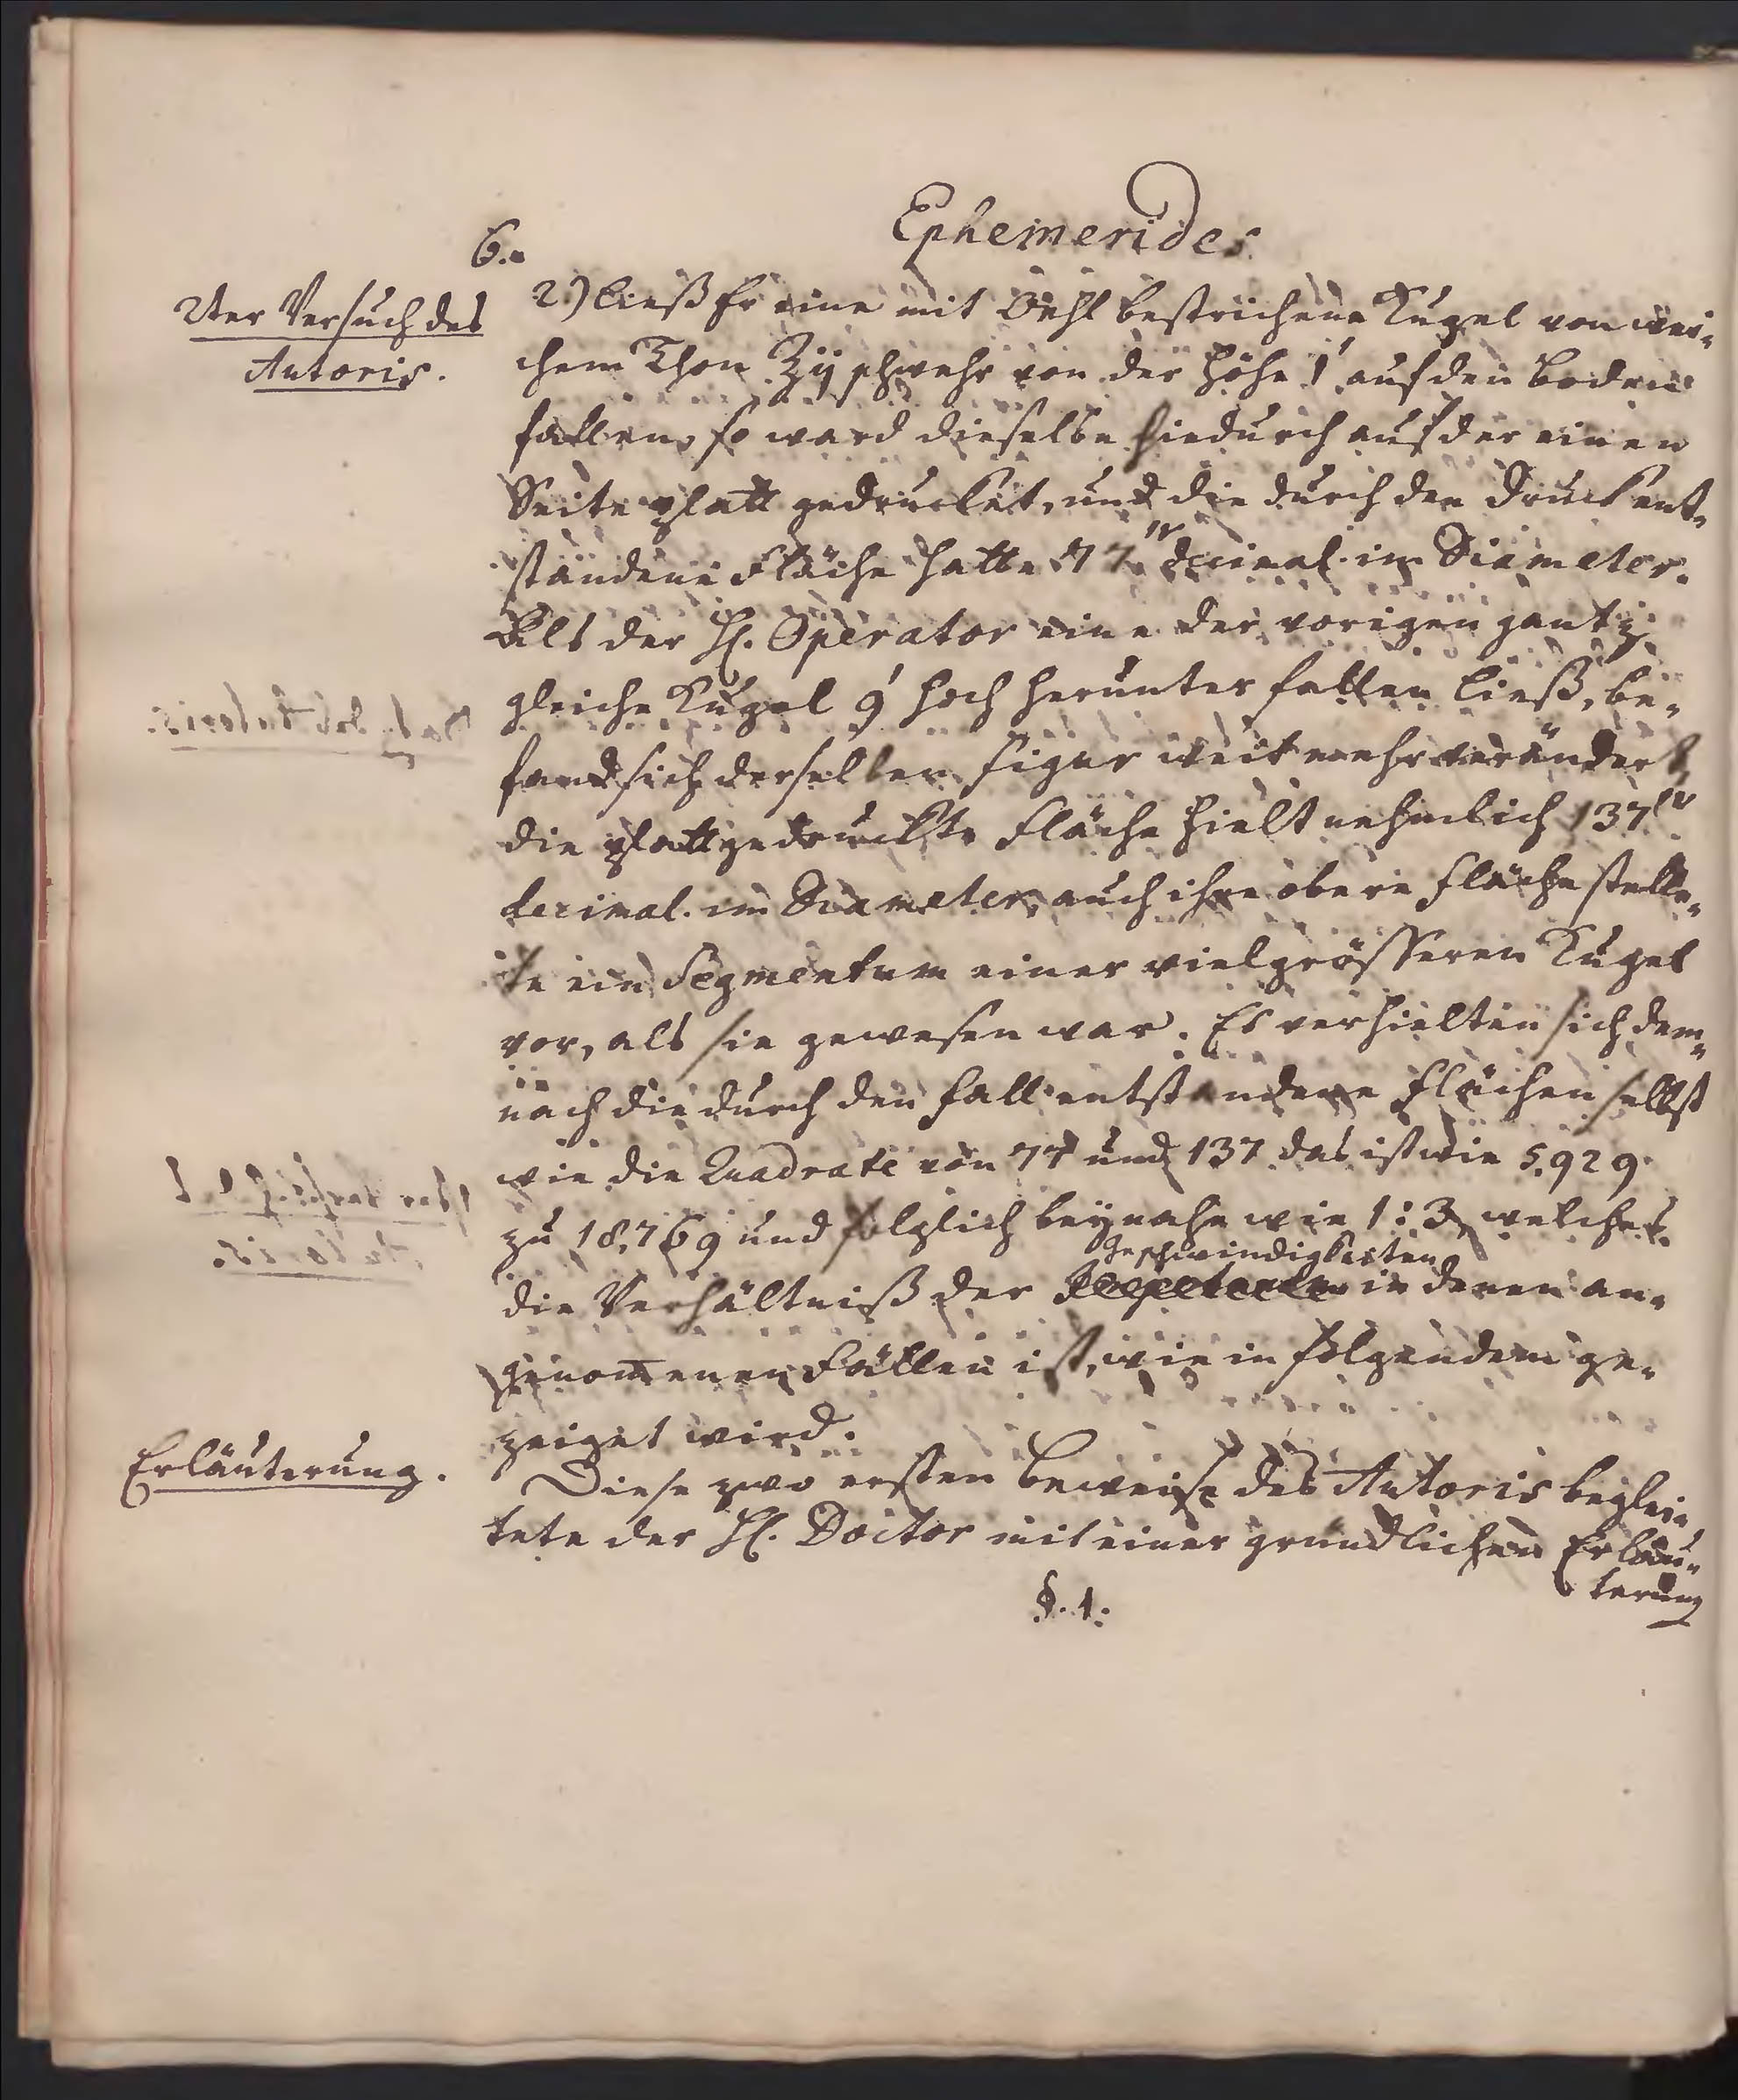 6.
Ephemerides
2ter Versuch des
Autoris.
2.) ließ Er eine mit Oehl bestrichene Kugel von wei-
chem Thon ℥ij schwehr von der Höhe 1' auf den Boden
fallen, so ward dieselbe hiedurch auf der einen
Seite platt gedrucket, und die durch den Druck ent-
standene Fläche hatte 77''' decimal. im Diameter.
Als der H. Operator eine der vorigen gantz
gleiche Kugel 9' hoch herunter fallen ließ, be-
fand sich derselben Figur weit mehr verändert,
die platt gedruckte Fläche hielt nehmlich 137'''
decimal. im Diameter, auch ihre obere Fläche stell-
te ein Segmentum einer viel grösseren Kugel
vor, als sie gewesen war. Es verhielten sich dem-
nach die durch den Fall entstandene Flächen selbst
wie die Quadrate von 77 und 137 das ist wie 5.929
zu 18.769 und folglich beynahe wie 1:3, welches
Geschwindigkeiten
die Verhältniß der in denen an-
genom̅enen Fällen ist, wie in folgendem ge-
zeiget wird.
Erläuterung.
Diese zwo ersten Beweise des Autoris beglei-
tete der H. Doctor mit einer grundlichen Erläu-
terung
§. 1.